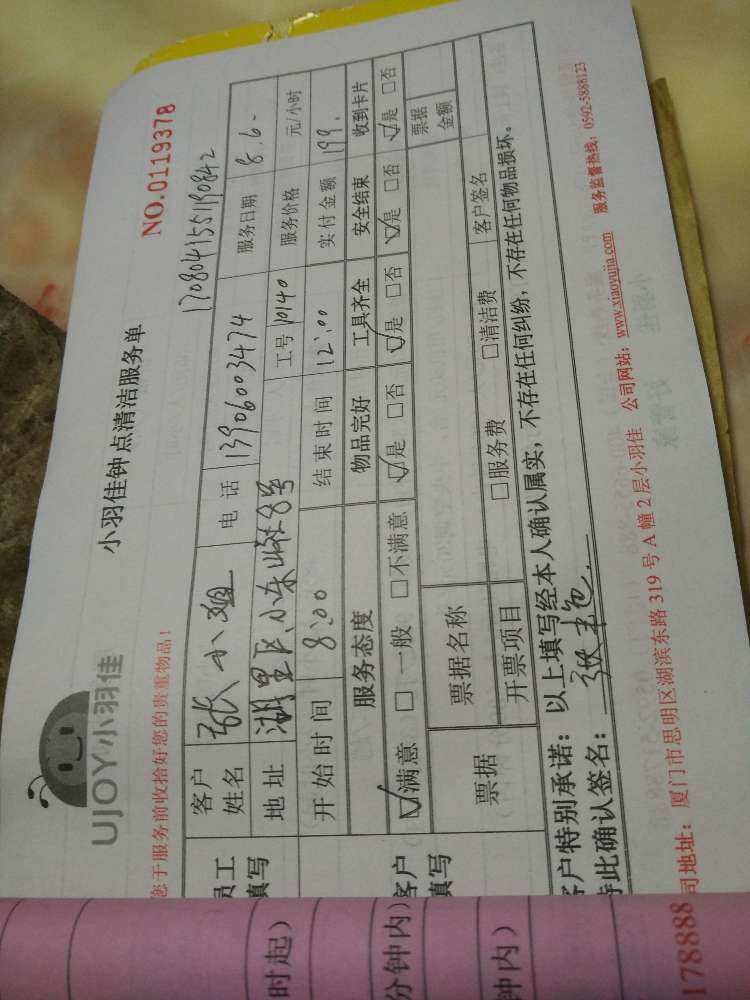 UJOY小羽佳
小羽佳钟点清洁服务单
NO.0119378
您于服务前收拾好您的贵重物品!
170804155190842
员工填写
客户姓名 张小姐 电话 13906003474 服务日期 8.6.
地址 湖里区 工号 10140 服务价格 元/小时
开始时间 8:00 结束时间 12:00 实付金额 199.
客户填写
服务态度 物品完好 工具齐全 安全结束 收到卡片
☑满意 □一般 □不满意 ☑是 □否 ☑是 □否 ☑是 □否 ☑是 □否
票据 票据名称 票据金额
开票项目 □服务费 □清洁费 客户签名
客户特别承诺:以上填写经本人确认属实,不存在任何纠纷,不存在任何物品损坏。
特此确认签名:
司地址:厦门市思明区湖滨东路319号A幢2层小羽佳 公司网站:www.xiaoyujia.com 服务监督热线:0592-5888123
时起)
分钟内)
钟内)
178888